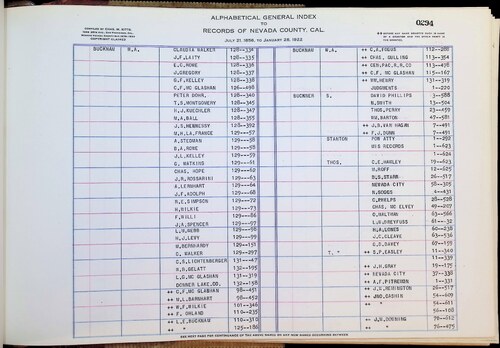 ALPHABETICAL GENERAL INDEX
TO
RECORDS OF NEVADA COUNTY, CAL.
JULY 21, 1856, TO JANUARY 28, 1922
0294
COPYRIGHT CLAIMED
BUCKMAN W.A. CLAUDIA WALKER 128--334
J.F. LAITY 128--335
L.C. HOWE 128--336
J. GREGORY 128--337
G.F. KELLEY 128--338
C.F. MC GLASHAN 126--498
PETER BOHR, 128--340
T.S. MONTGOMERY 128--345
H.J. KUECHLER 128--347
M.A. BALL 128--355
J.S. HENNESSY 128--392
W.H. LA FRANCE 129--57
A. STEDMAN 129--58
B.A. ROWE 129--58
J.L. KELLEY 129--59
G. WATKINS 129--60
CHAS. HOPE 129--62
J.R. ROSSARINI 129--63
A. LERNHART 129--64
J.F. ADOLPH 129--68
H.E. SIMPSON 129--72
H. WILKIE 129--73
F. BILLI 129--86
J.A. SPENCER 129--97
L.W. WEBB 129--98
H.J. LEVY 129--99
W. BERNHARDY 129--151
C. WALKER 129--297
C.S. LICHTENBERGER 131--47
H.D. GELATT 132--195
L.G. MC GLASHAN 131--319
DONNER LAKE.CO. 132--158
++ C.F. MC GLASHAN 98--451
++ W.L. BARNHART 98--452
++ W.F. WILKIE 101--346
++ F. OHLAND 110--235
++ L.E. BUCKNAM 110--310
++ " 125--186
BUCKMAN W.A. ++ C.A. FOGUS 112--280
++ CHAS. GULLING 113--354
++ CEN.PAC.R.R.CO 113--476
++ C.F. MC GLASHAN 115--167
++ WM. HENRY 131--319
JUDGMENTS 1--220
BUCKNER S. DAVID PHILLIPS 3--588
N. SMITH 13--504
THOS. PERRY 23--459
WM. BARTON 47--581
++ J.B. VAN HAGAN 7--491
++ F.J. DUNN 7--491
STANTON POW ATTY 1--292
MIS RECORDS 1--623
1--624
THOS. C.E. HARLEY 19--623
M. HOFF 12--625
B.B. STARR 26--517
NEVADA CITY 58--305
N. BOGGS 4--431
C. PHELPS 28--528
CHAS. MC ELVEY 49--207
C. WALTMAN 63--566
L.H. DREYFUSS 61--32
W.A. LONES 60--238
J.C. CLEAVE 63--536
S.C. OAKEY 67--155
T. " ++ D.P. EASLEY 11--340
11--339
++ J.H. GRAY 11--175
++ NEVADA CITY 37--338
++ A.F. PITHERON 1--331
++ J.S. REMINGTON 26--517
++ JNO. CASHIN 54--609
" 54--611
56--108
++ J.H. DOWNING 78--212
++ " 76--475
SEE NEXT PAGE FOR CONTINUANCE OF THE ABOVE NAMES OR OUT NEW NAMES OCCURRING BETWEEN